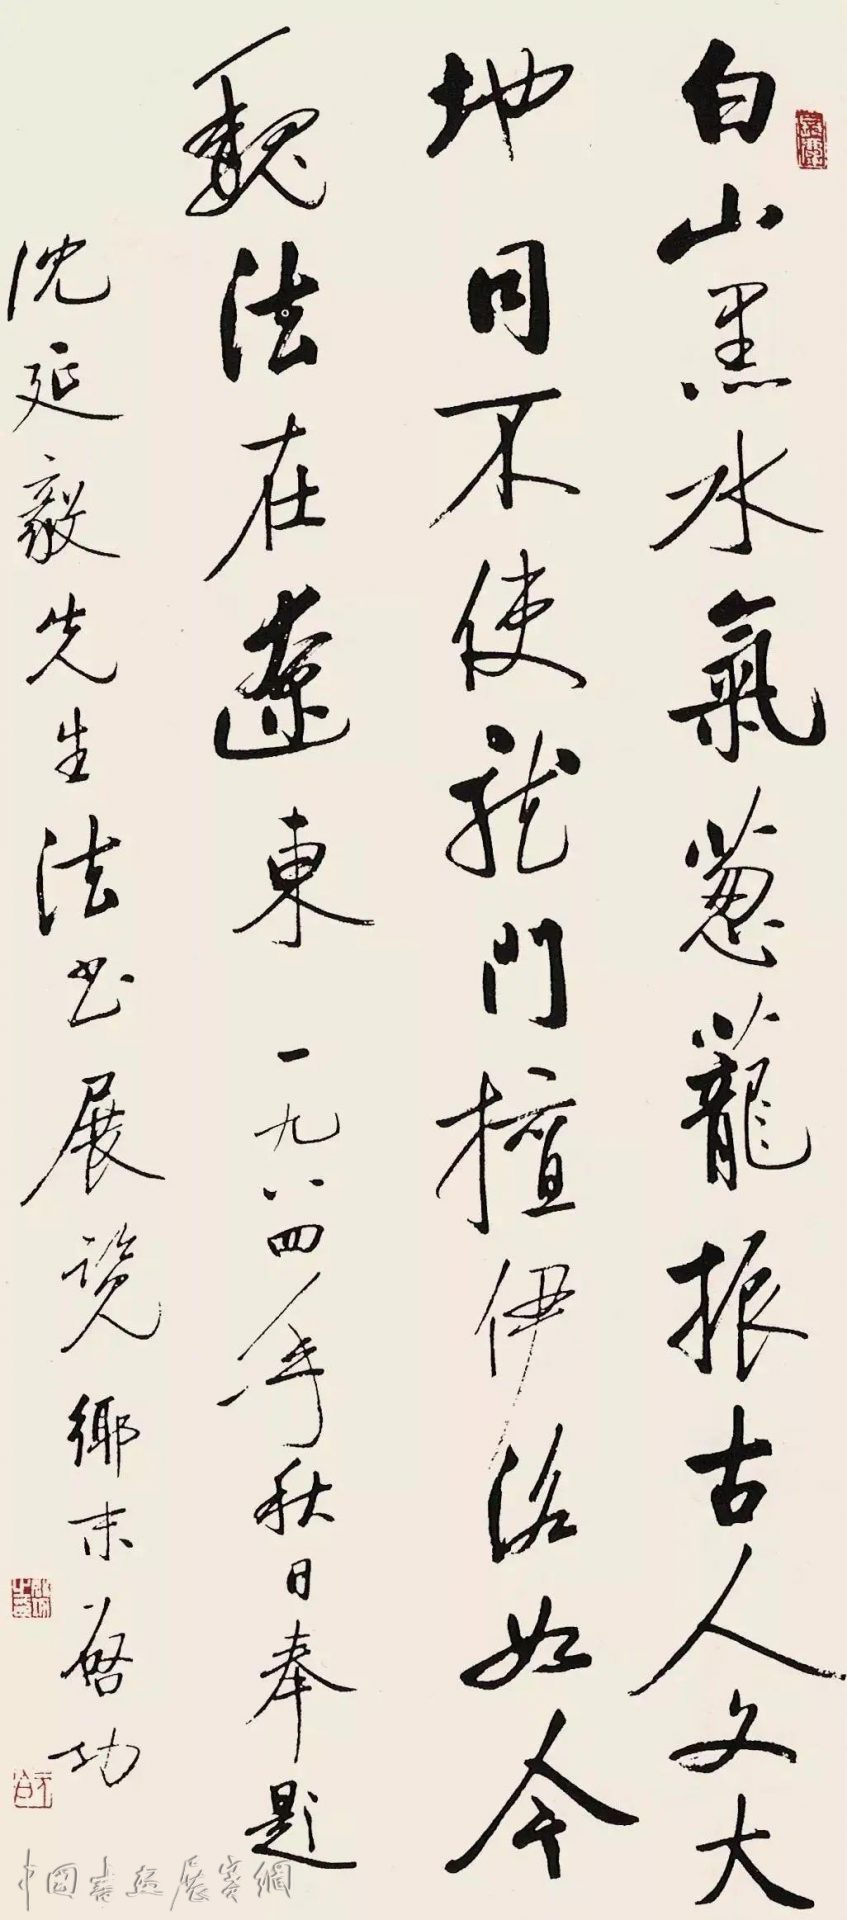 白山黑水氣葱蘢振古人文大
地同不使龍門擅伊洛如今
魏法在遼東 一九八四年秋日奉題
沈延毅先生法书展览 鄉末啓功
中国書画展賽網